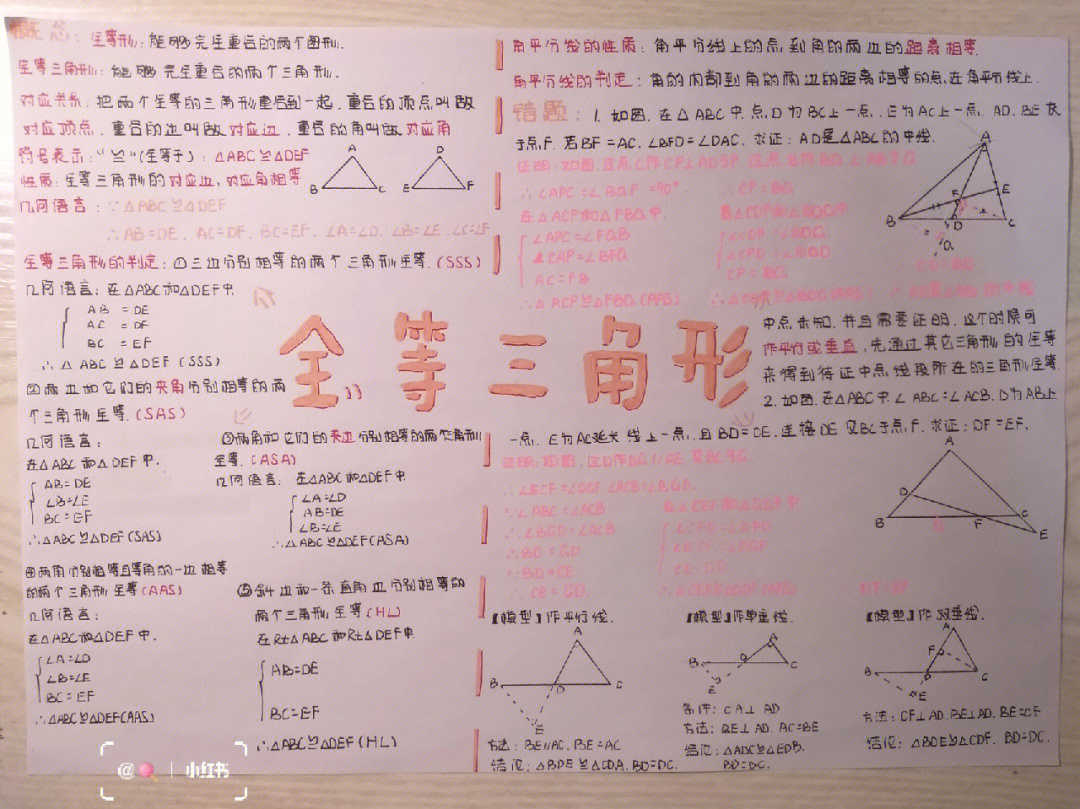 概念:全等形:能够完全重合的两个图形.
全等三角形:能够完全重合的两个三角形.
对应关系:把两个全等的三角形重合到一起.重合的顶点叫做
对应顶点.重合的边叫做对应边.重合的角叫做对应角
符号表示:"≌"(全等于):△ABC≌△DEF
性质:全等三角形的对应边,对应角相等
A
B
C
D
E
F
几何语言:∵△ABC≌△DEF
∴AB=DE. AC=DF. BC=EF. ∠A=∠D. ∠B=∠E. ∠C=∠F
全等三角形的判定:①三边分别相等的两个三角形全等.(SSS)
几何语言:在△ABC和△DEF中.
AB=DE
AC=DF
BC=EF
∴△ABC≌△DEF(SSS)
②两边和它们的夹角分别相等的两
个三角形全等.(SAS)
几何语言:
在△ABC和△DEF中.
AB=DE
∠B=∠E
BC=EF
∴△ABC≌△DEF(SAS)
③两角和它们的夹边分别相等的两个三角形
全等.(ASA)
几何语言:在△ABC和△DEF中
∠A=∠D
AB=DE
∠B=∠E
∴△ABC≌△DEF(ASA)
④两角分别相等且等角的一边相等
的两个三角形全等(AAS)
几何语言:
在△ABC和△DEF中.
∠A=∠D
∠B=∠E
BC=EF
∴△ABC≌△DEF(AAS)
⑤斜边和一条直角边分别相等的
两个三角形全等(HL)
在Rt△ABC和Rt△DEF中
AB=DE
BC=EF
∴△ABC≌△DEF(HL)
全等三角形
角平分线的性质:角平分线上的点到角的两边的距离相等
角平分线的判定:角的内部到角的两边的距离相等的点在角平分线上.
错题:1.如图.在△ABC中.点D为BC上一点.E为AC上一点.AD.BE交
于点F.若BF=AC.∠BFD=∠DAC.求证:AD是△ABC的中线.
∴∠APC=∠BQF=90°
∴CP=BQ
在△ACP和△FBQ中.
∠APC=∠FQB
∠CAP=∠BFQ
AC=FB
∴△ACP≌△FBQ(AAS)
在△CDP和△BDQ中
∠CPD=∠BQD
CP=BQ
A
E
F
B
D
C
Q
中点未知.并且需要证明.这个时候可
作平行或垂直,先通过其它三角形的全等
来得到待证中点线段所在的三角形全等.
2.如图.在△ABC中.∠ABC=∠ACB.D为AB上
一点.E为AC延长线上一点.且BD=CE.连接DE交BC于点F.求证:DF=EF.
证明:如图.过D作DG∥AE.交BC于G.
∵∠ABC=∠ACB
∴∠BGD=∠ACB
∴BD=GD
∵BD=CE
∴CE=GD.
A
D
B
G
F
C
E
【模型】作平行线.
A
B
D
C
E
方法:BE∥AC.BE=AC
结论:△BDE≌△CDA.BD=DC.
【模型】作单垂线.
A
B
D
C
E
条件:CA⊥AD
方法:BE⊥AD.AC=BE
结论:△ADC≌△EDB.
BD=DC.
【模型】作双垂线.
A
F
B
D
C
E
方法:CF⊥AD.BE⊥AD.BE=CF
结论:△BDE≌△CDF.BD=DC.
@🍭 | 小红书